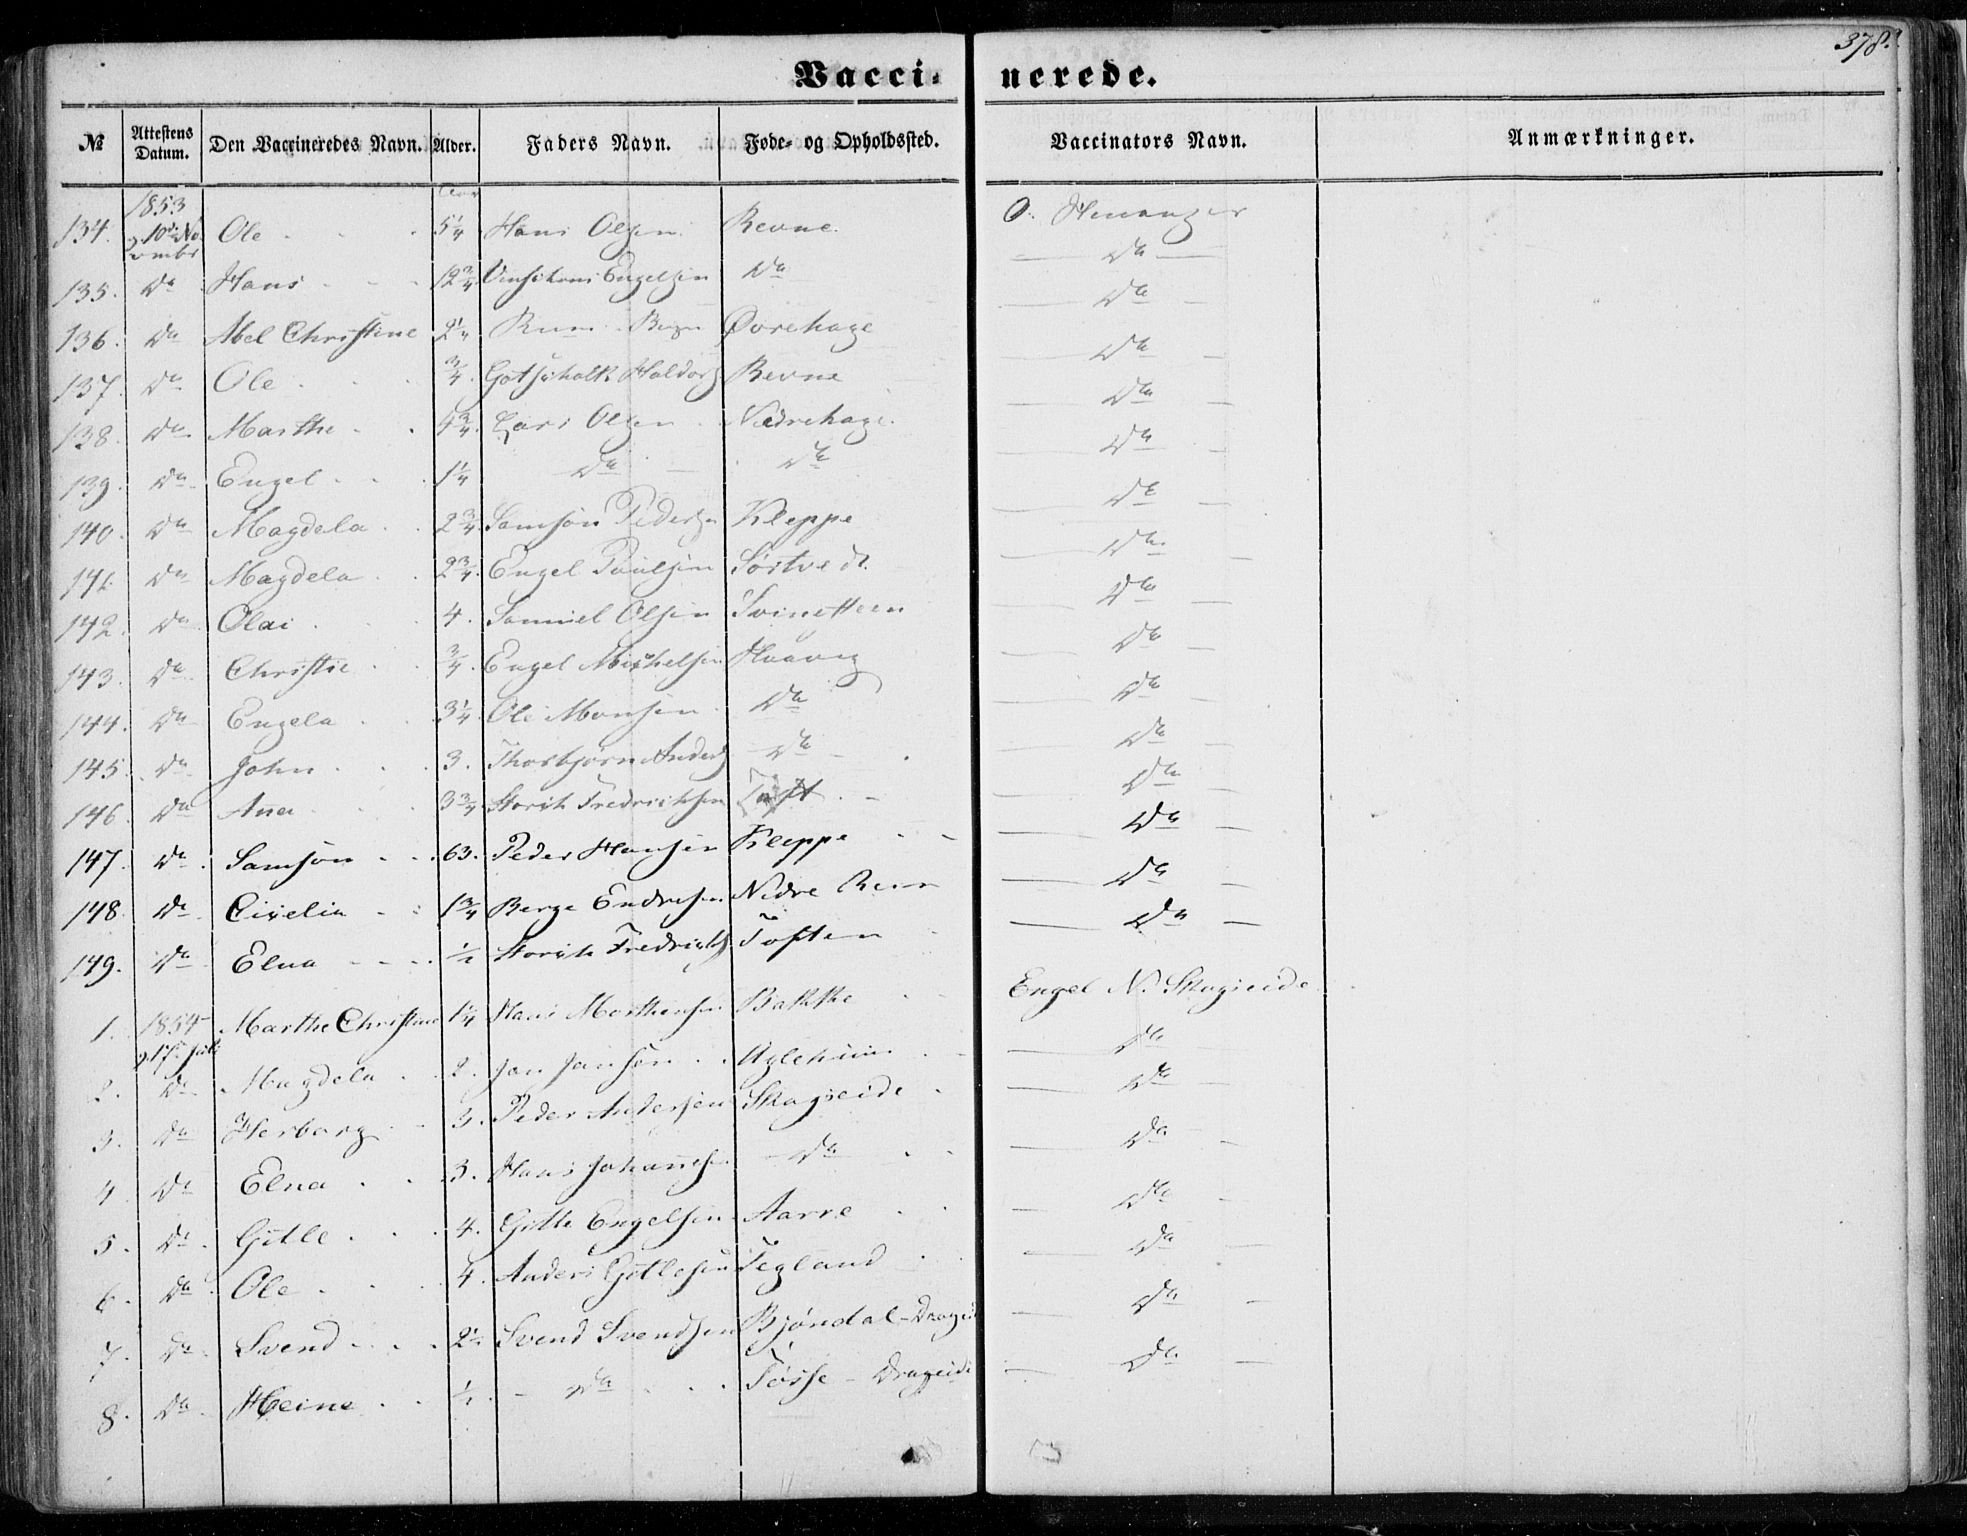 378.
Vacci- nerede.
№ Attestens Datum. Den Vaccineredes Navn. Alder. Faders Navn. Føde- og Opholdssted. Vaccinators Navn. Anmærkninger.
1853
134. 10de No- Ole 5¼ Hans Olsen Revne O. Henanger
vembr
135. Do Hans 12¾ Engelsen Do Do
136. Do Abel Christine 2¼ Øvrehage Do
137. Do Ole ¾ Gotschalk Haldors Revne Do
138. Do Marthe 4¾ Lars Olsen Nedrehage Do
139. Do Engel 1¼ Do Do Do
140. Do Magdela 2¾ Samson Peders Kleppe Do
141. Do Magdela 2¾ Engel Paulsen Sørtvedt Do
142. Do Olai 4. Samuel Olsen Do
143. Do Christie ¾ Engel Michelsen Haavig Do
144. Do Engela 3¼ Ole Monsen Do Do
145. Do John 3. Thorbjørn Anders Do Do
146. Do Ana 3¾ Fredrichsen Toft Do
147. Do Samson 63. Peder Hansen Kleppe Do
148. Do Cicelia 1¾ Berge Endresen Nedre Do
149. Do Elna ½ Fredrichs Toften Do
1. 1854 Marthe Christine 1¼ Hans Morthensen Bakke Engel N. Skageeide
17. Juli
2. Do Magdela 2. Jan Jansen Do
3. Do Herborg 3. Peder Andersen Skageeide Do
4. Do Elna 3. Hans Johannesen Do Do
5. Do Gitle 4. Gitle Engelsen Aarre Do
6. Do Ole 4. Anders Gitlesen Tegland Do
7. Do Svend 2½ Svend Svendsen Bjøndal - Drageid Do
8. Do Heine ½ Do Tøsse - Drageide Do